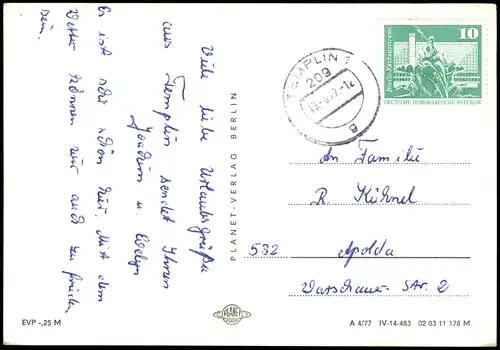 Viele liebe Urlaubsgrüße
aus Templin sendet Ihnen
Joachim u. Evelyn
Es ist sehr schön hier. Mit dem
Wetter können wir auch zufrieden
sein.
PLANET-VERLAG BERLIN
TEMPLIN 1
209
10
Berlin, Rathausstraße
DEUTSCHE DEMOKRATISCHE REPUBLIK
An Familie
R. Kühnel
532 Apolda
Warschauer Str. 2
PLANET
EVP -,25 M
A 4/77 IV-14-483 02 03 11 178 M